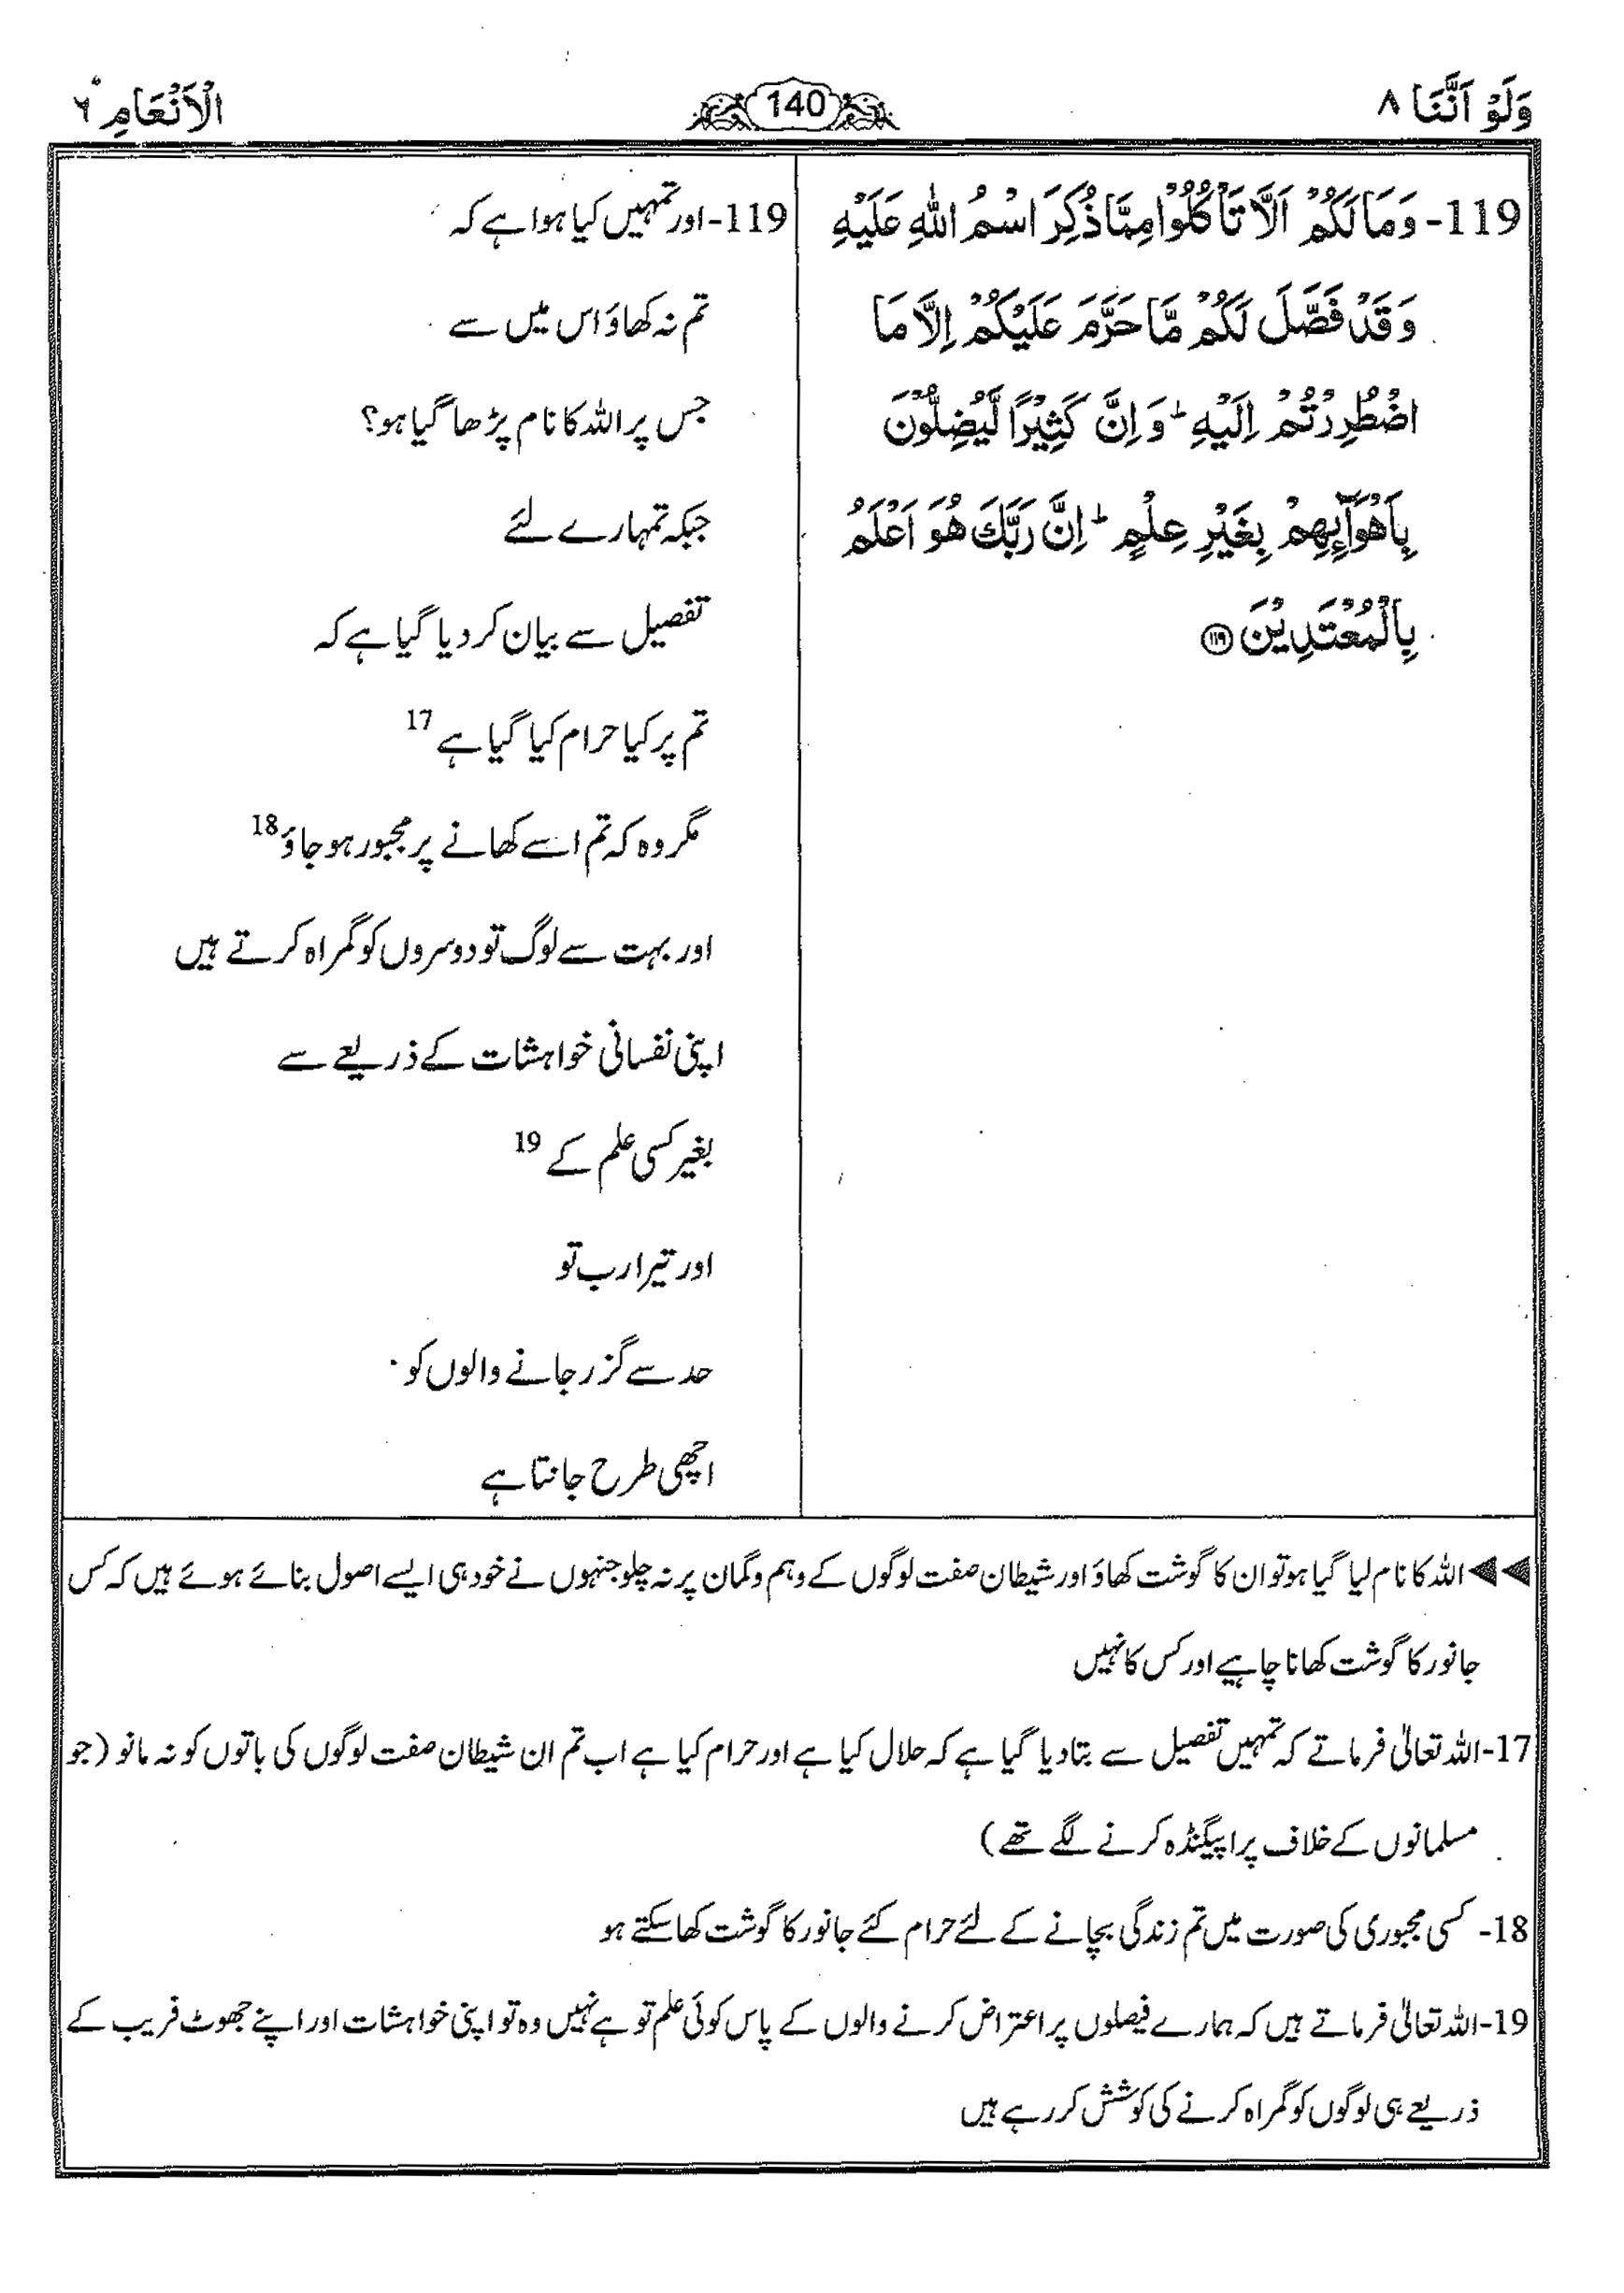 وَلَوْ اَنَّنَا ٨
140
الْاَنْعَامِ ٦
119- وَمَا لَكُمْ اَلَّا تَاْكُلُوْا مِمَّا ذُكِرَ اسْمُ اللّٰهِ عَلَيْهِ
وَقَدْ فَصَّلَ لَكُمْ مَّا حَرَّمَ عَلَيْكُمْ اِلَّا مَا
اضْطُرِرْتُمْ اِلَيْهِ ؕ وَاِنَّ كَثِيْرًا لَّيُضِلُّوْنَ
بِاَهْوَآىِٕهِمْ بِغَيْرِ عِلْمٍ ؕ اِنَّ رَبَّكَ هُوَ اَعْلَمُ
بِالْمُعْتَدِيْنَ ﴿١١٩﴾
119- اور تمہیں کیا ہوا ہے کہ
تم نہ کھاؤ اس میں سے
جس پر اللہ کا نام پڑھا گیا ہو؟
جبکہ تمہارے لئے
تفصیل سے بیان کر دیا گیا ہے کہ
تم پر کیا حرام کیا گیا ہے 17
مگر وہ کہ تم اسے کھانے پر مجبور ہو جاؤ 18
اور بہت سے لوگ تو دوسروں کو گمراہ کرتے ہیں
اپنی نفسانی خواہشات کے ذریعے سے
بغیر کسی علم کے 19
اور تیرا رب تو
حد سے گزر جانے والوں کو
اچھی طرح جانتا ہے
◄◄ اللہ کا نام لیا گیا ہو تو ان کا گوشت کھاؤ اور شیطان صفت لوگوں کے وہم و گمان پر نہ چلو جنہوں نے خود ہی ایسے اصول بنائے ہوئے ہیں کہ کس
جانور کا گوشت کھانا چاہیے اور کس کا نہیں
17- اللہ تعالیٰ فرماتے کہ تمہیں تفصیل سے بتا دیا گیا ہے کہ حلال کیا ہے اور حرام کیا ہے اب تم ان شیطان صفت لوگوں کی باتوں کو نہ مانو (جو
مسلمانوں کے خلاف پراپیگنڈہ کرنے لگے تھے)
18- کسی مجبوری کی صورت میں تم زندگی بچانے کے لئے حرام کئے جانور کا گوشت کھا سکتے ہو
19- اللہ تعالیٰ فرماتے ہیں کہ ہمارے فیصلوں پر اعتراض کرنے والوں کے پاس کوئی علم تو ہے نہیں وہ تو اپنی خواہشات اور اپنے جھوٹ فریب کے
ذریعے ہی لوگوں کو گمراہ کرنے کی کوشش کر رہے ہیں